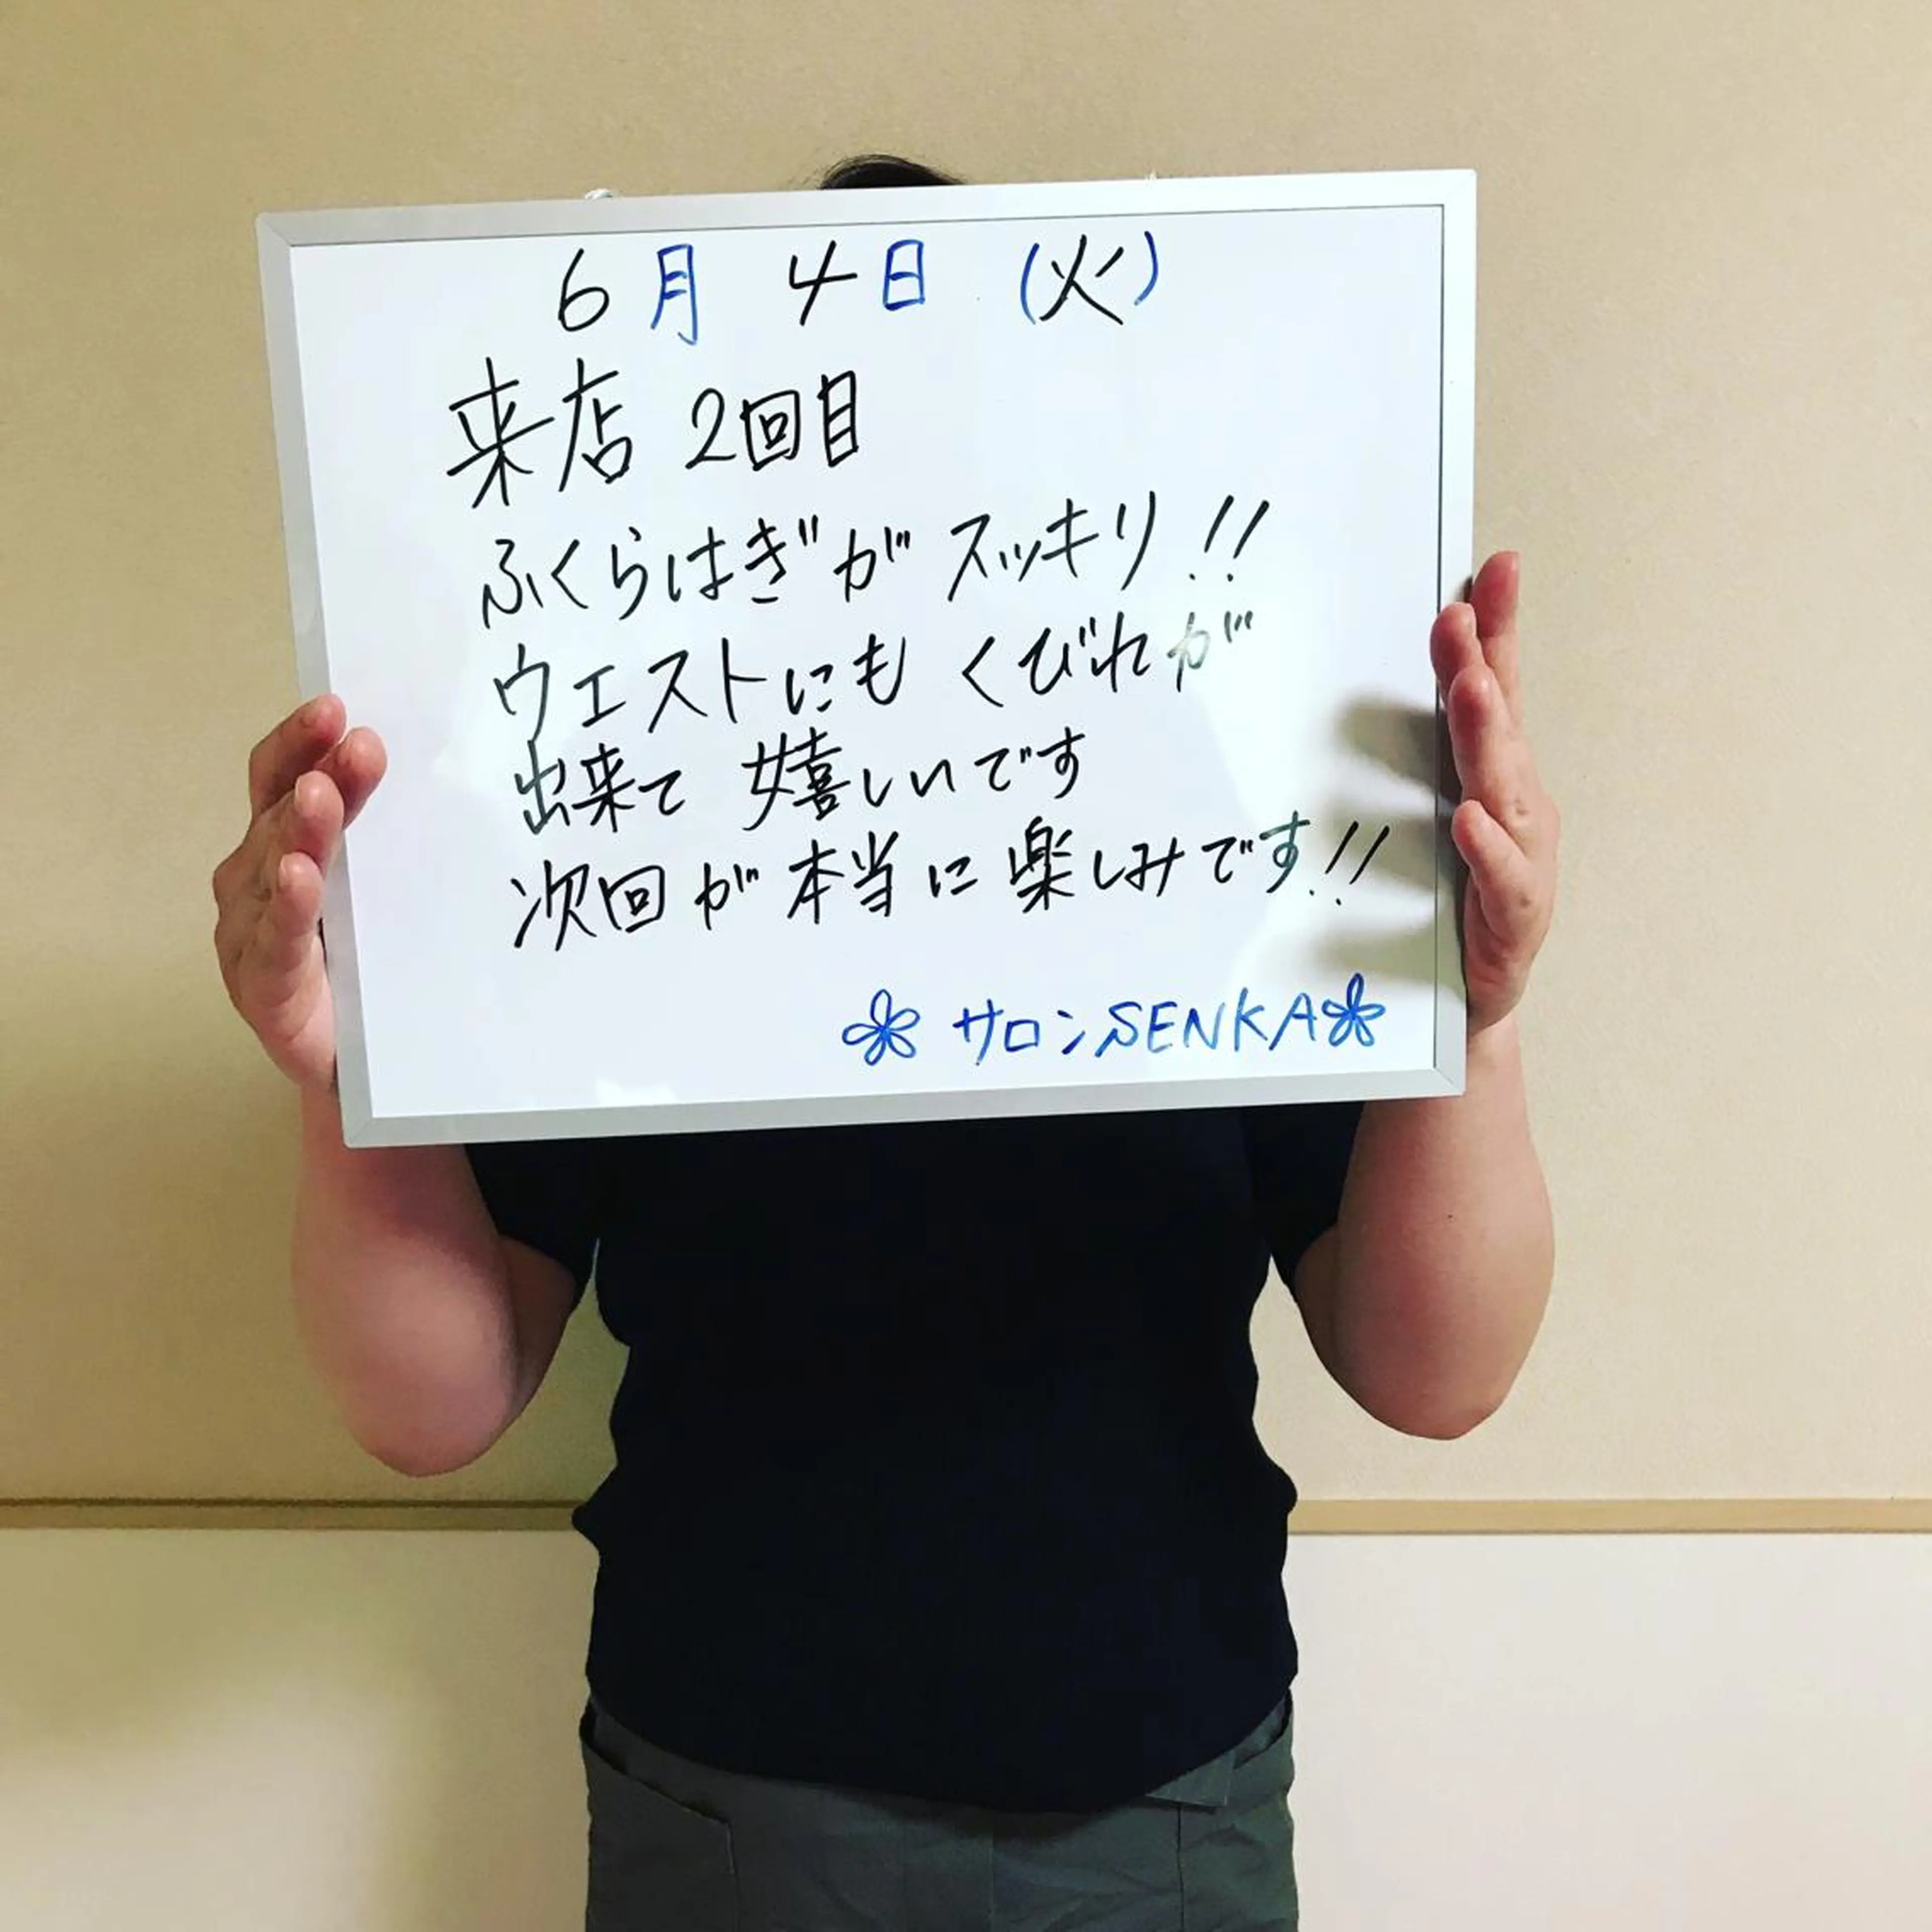 6月 4日 (火)
来店 2回目
ふくらはぎが スッキリ!!
ウエストにも くびれが
出来て 嬉しいです
次回が 本当に 楽しみです!!
サロンSENKA